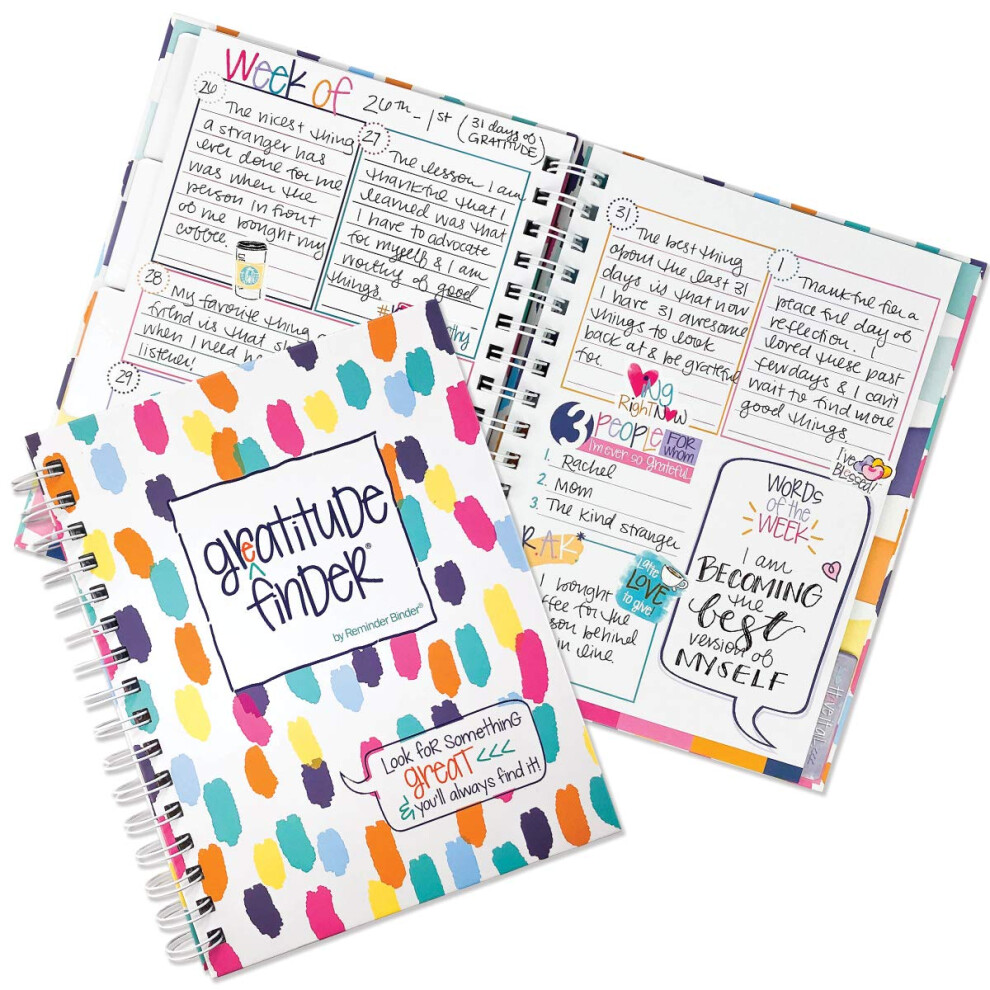 Week of 26th - 1st (31 days of
GRATITUDE)
26
The nicest thing
a stranger has
ever done for me
was when the
person in front
of me bought my
coffee
27
The lesson I am
thankful that I
learned was that
I have to advocate
for myself & I am
worthy of good
things.
28
My favorite thing
friend is that
when I need
listener!
29
31
The best thing
about the last 31
days is that now
I have 31 awesome
things to look
back at & be grateful
for.
1
Thankful for a
peaceful day of
reflection. I
loved these past
few days & I can't
wait to find more
good things
I've
Blessed!
Right Now
3 PEOPLE FOR
WHOM
I'm ever so grateful
1. Rachel
2. Mom
3. The kind stranger
R.A.K*
I bought
for the
behind
in line.
LOVE
to give!
WORDS
of the
WEEK
I am
BECOMING
the
best
version of
MYSELF
greatitude
finder®
by Reminder Binder®
Look for something
great <<<
& you'll always find it!